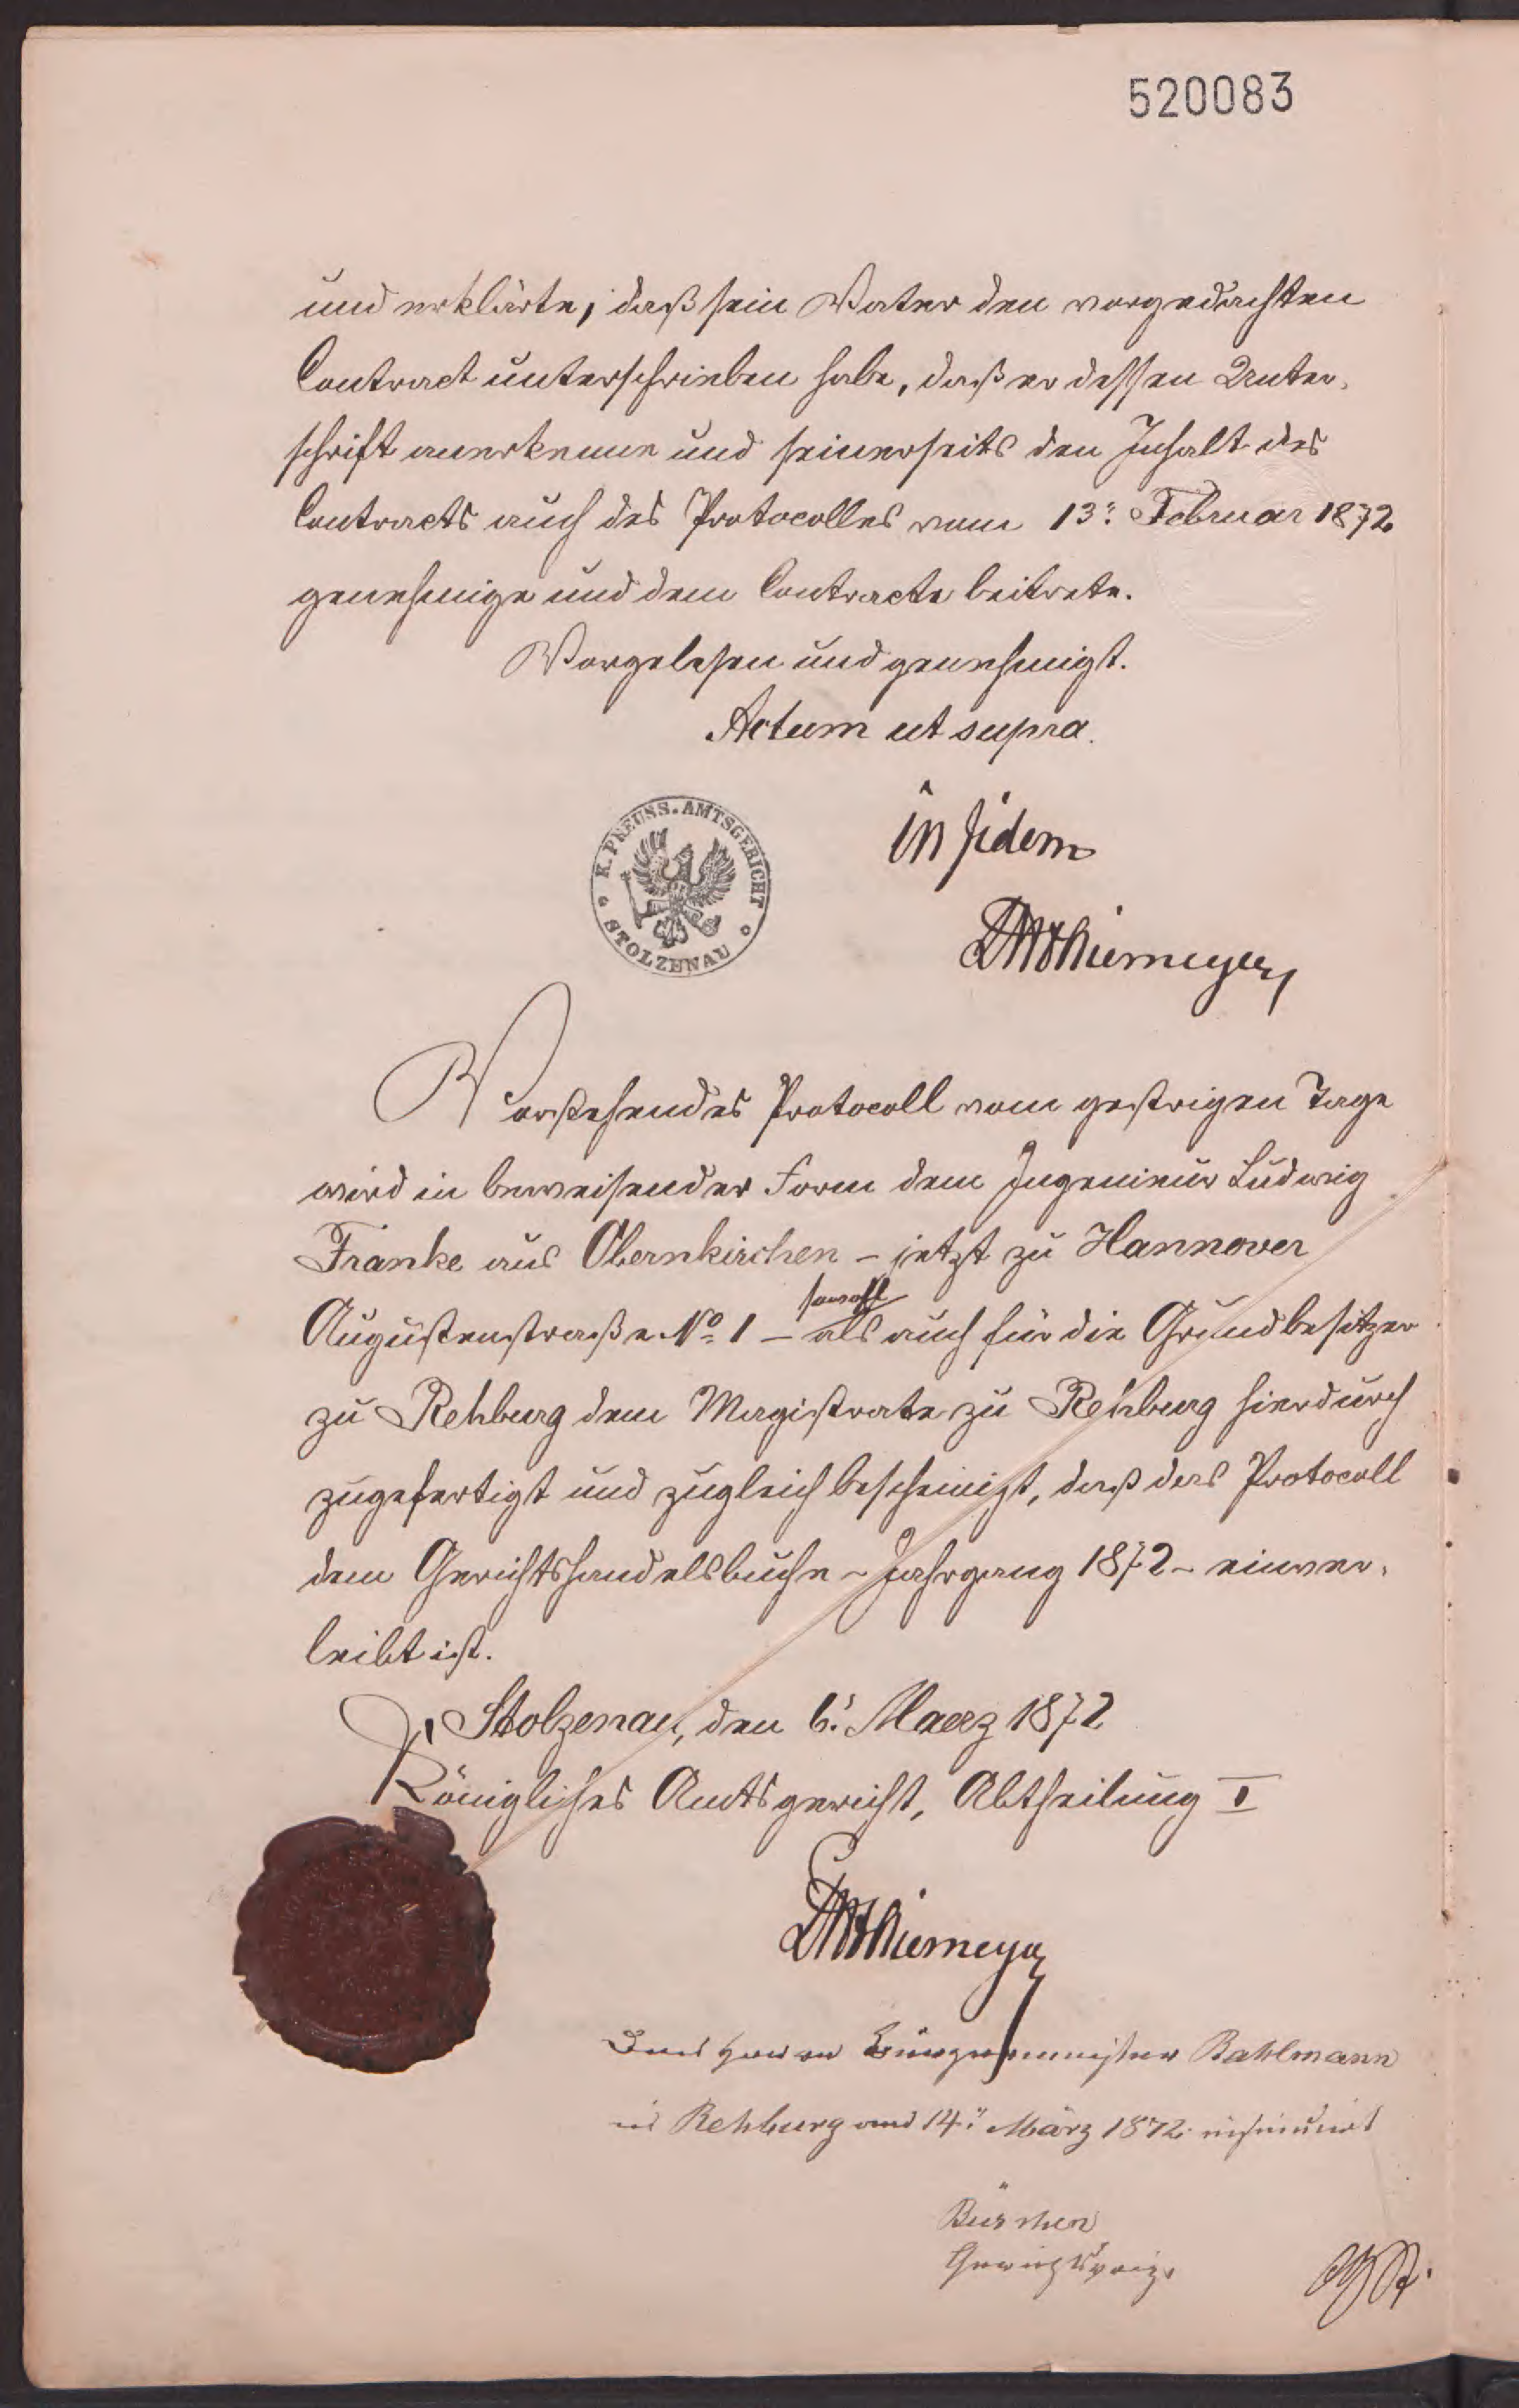 520083
und erklärte, daß sein Vater den vorgedachten
Contract unterschrieben habe, daß er dessen Unter-
schrift anerkenne und seinerseits den Inhalt des
Contracts auch des Protocolles vom 13: Februar 1872
genehmige und dem Contracte beitrete.
Vorgelesen und genehmigt.
Actum ut supra.
K. PREUSS. AMTSGERICHT
STOLZENAU
in fidem
Thiemeyer
Vorstehendes Protocoll vom gestrigen Tage
wird in beweisender Form dem Ingenieur Ludwig
Franke aus Obernkirchen - jetzt zu Hannover
sowohl
Augustenstraße No 1 - als auch für die Grundbesitzer
zu Rehburg dem Magistrate zu Rehburg hierdurch
zugefertigt und zugleich bescheinigt, daß das Protocoll
dem Gerichtshandelsbuche - Jahrgang 1872 - einver-
leibt ist.
Stolzenau, den 6. Maerz 1872
Königliches Amtsgericht, Abtheilung I
Thiemeyer
Dem Herrn Bürgermeister Bahlmann
in Rehburg am 14. März 1872 insinuirt